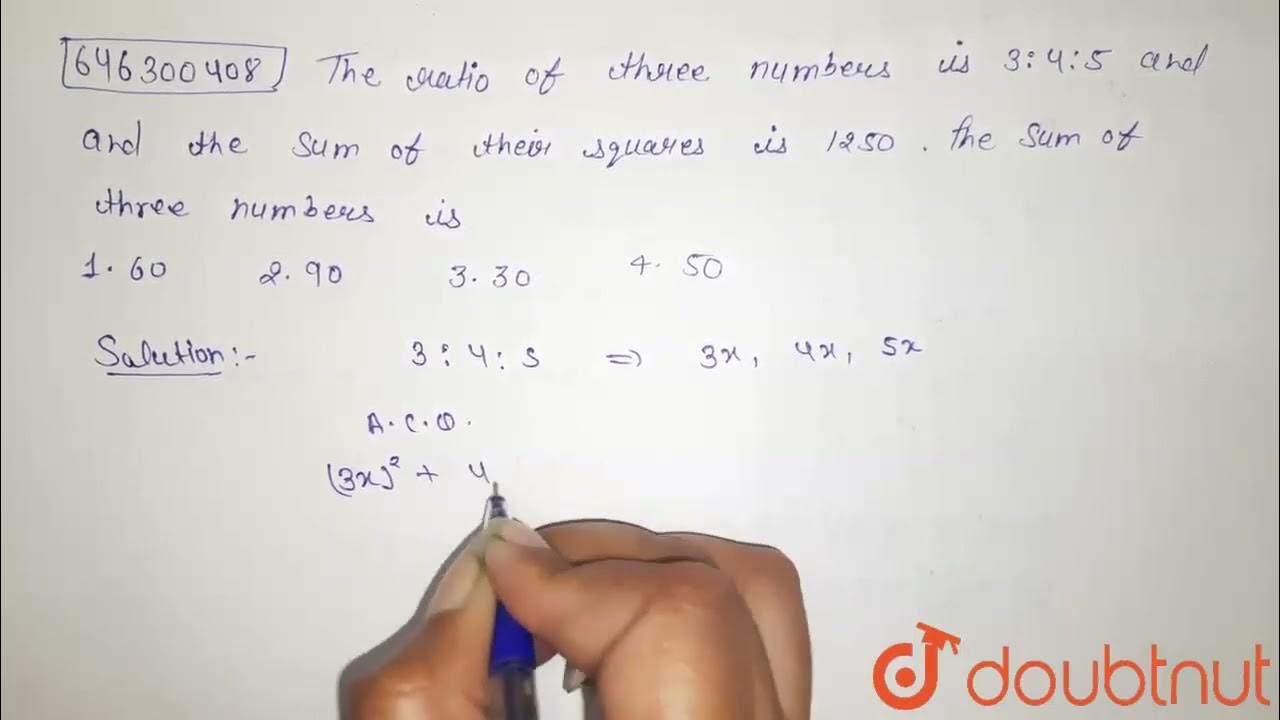 646300408 The ratio of three numbers is 3:4:5 and
and the sum of their squares is 1250. The sum of
three numbers is
1. 60 2. 90 3. 30 4. 50
Solution:- 3 : 4 : 5 => 3x, 4x, 5x
A.C.Q.
(3x)² + 4
doubtnut